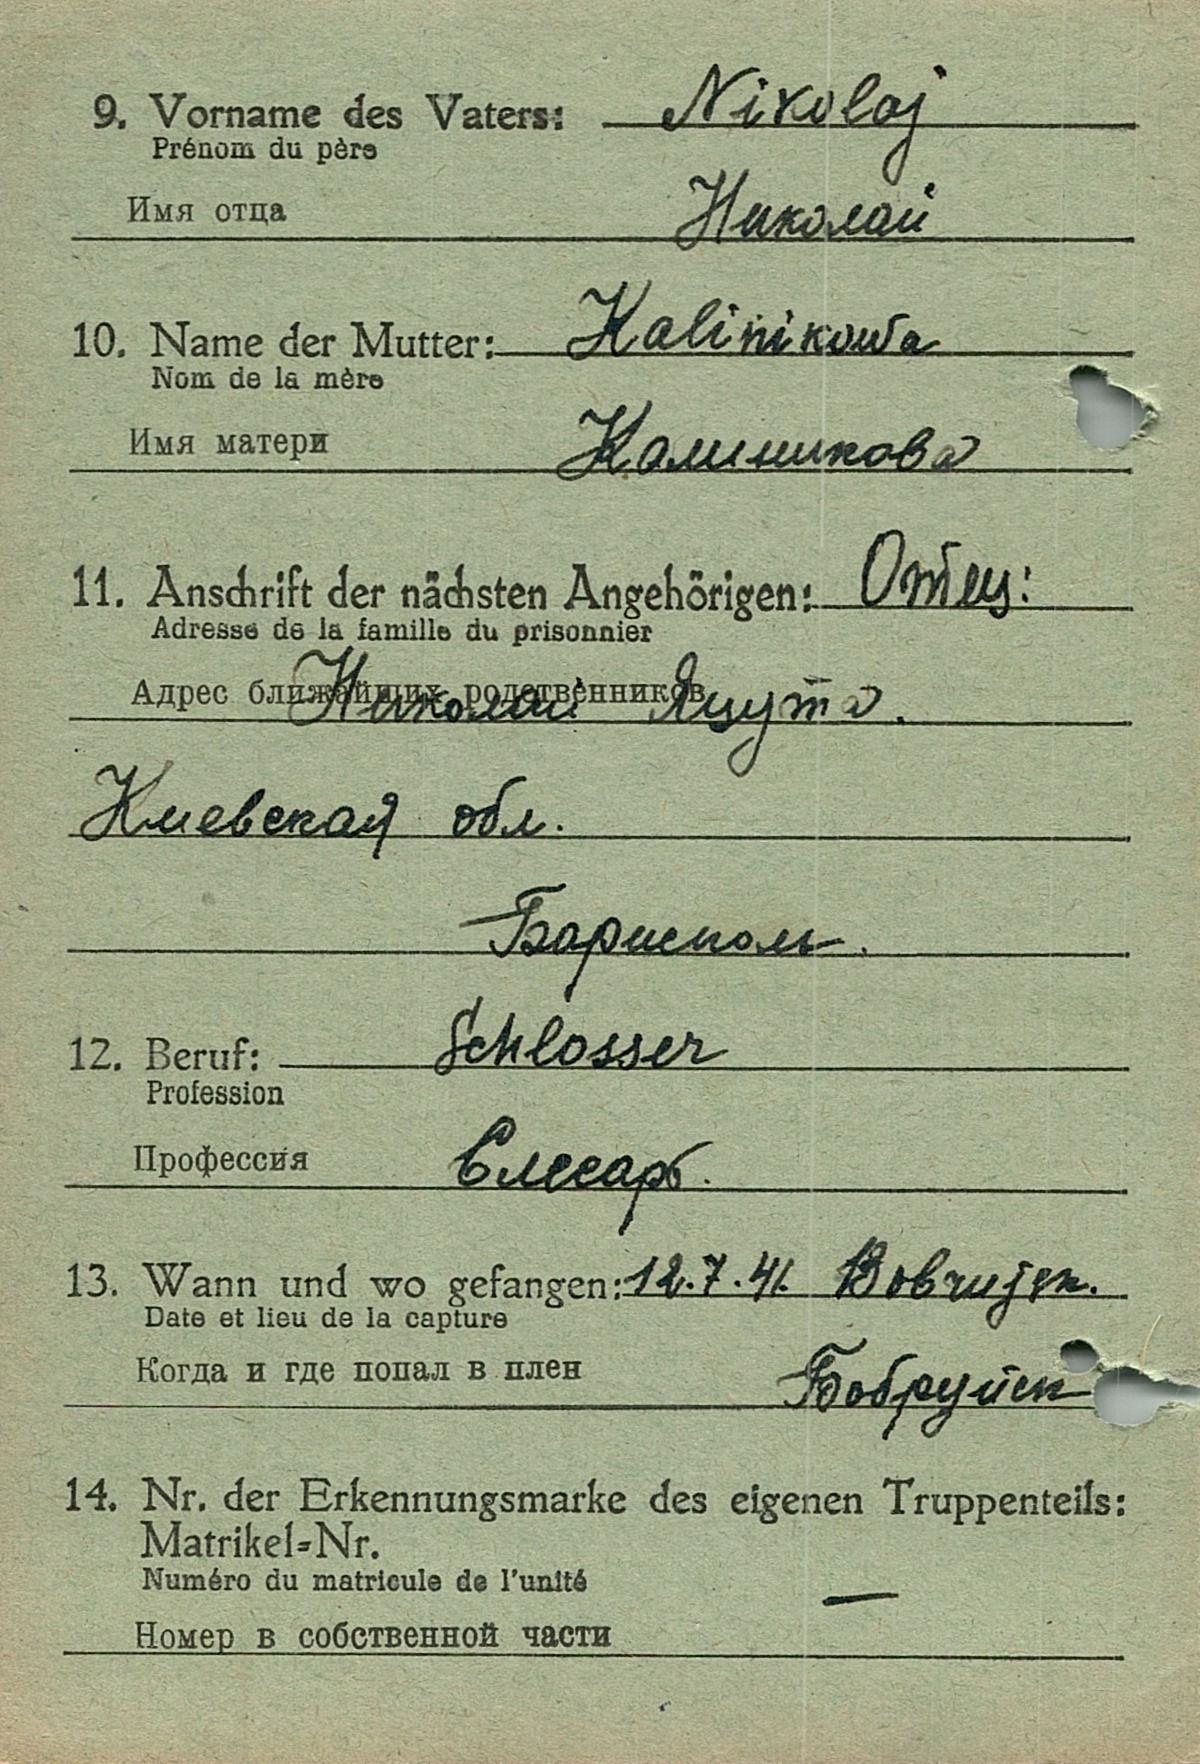 9. Vorname des Vaters: Nikolaj
Prénom du père
Имя отца Николай
10. Name der Mutter: Kalinikowa
Nom de la mère
Имя матери Калиникова
11. Anschrift der nächsten Angehörigen: Отец:
Adresse de la famille du prisonnier
Адрес ближайших родственников
Николай Яцута.
Киевская обл.
Барисполь.
12. Beruf: Schlosser
Profession
Профессия Слесарь.
13. Wann und wo gefangen: 12.7.41. Bobrujsk.
Date et lieu de la capture
Когда и где попал в плен Бобруйск
14. Nr. der Erkennungsmarke des eigenen Truppenteils:
Matrikel-Nr.
Numéro du matricule de l'unité —
Номер в собственной части